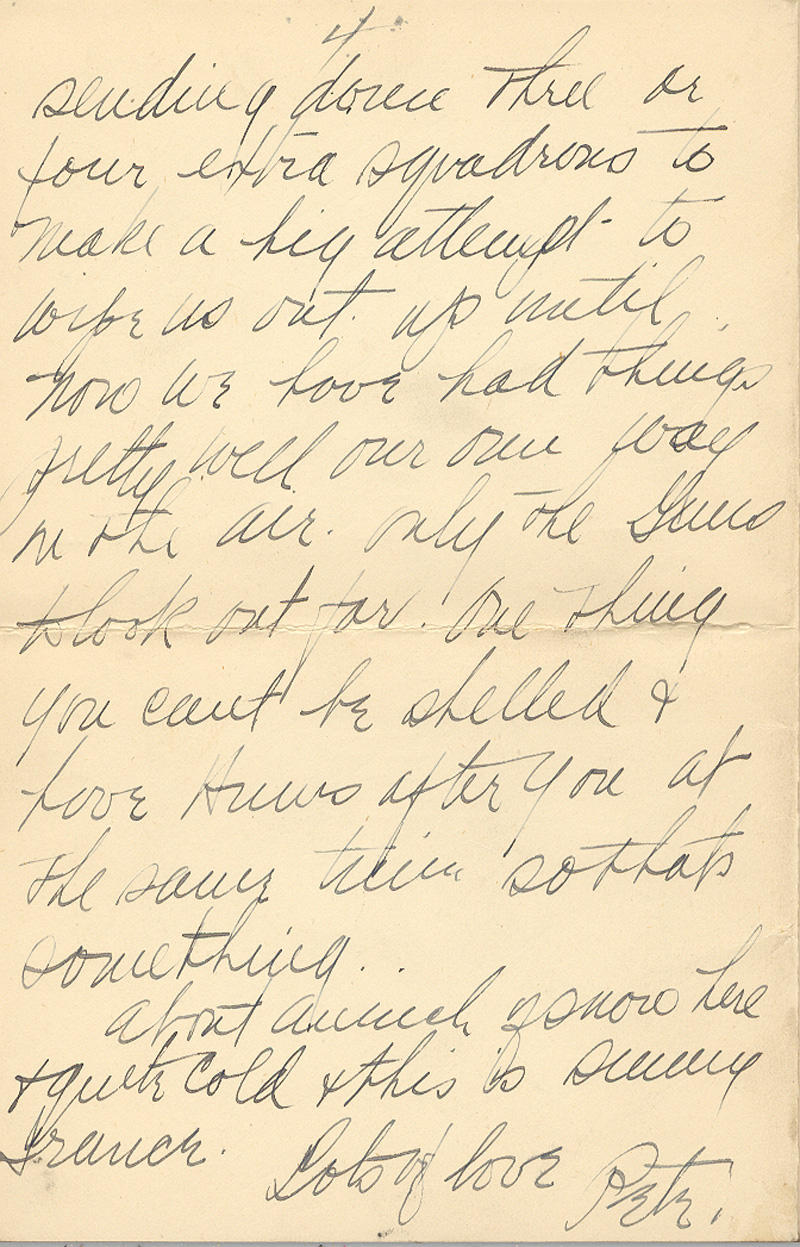 4
sending down three or
four extra squadrons to
make a big attempt to
wipe us out. up until
now we have had things
pretty well our own way
in the air. only the Guns
to look out for. One thing
you cant be shelled &
have Huns after you at
the same time so thats
something..
About an inch of snow here
& quite cold & this is sunny
France.
Lots of love Pete.